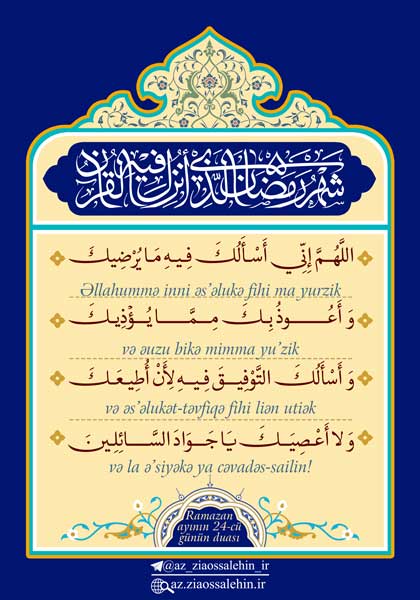 شَهْرُ رَمَضَانَ الَّذِي أُنْزِلَ فِيهِ الْقُرْآنُ
اللَّهُمَّ إِنِّي أَسْأَلُكَ فِيهِ مَا يُرْضِيكَ
Əllahummə inni əs’əlukə fihi ma yurzik
وَ أَعُوذُ بِكَ مِمَّا يُؤْذِيكَ
və əuzu bikə mimma yu’zik
وَ أَسْأَلُكَ التَّوْفِيقَ فِيهِ لِأَنْ أُطِيعَكَ
və əs’əlukət-təvfiqə fihi liən utiək
وَ لا أَعْصِيَكَ يَا جَوَادَ السَّائِلِينَ
və la ə’siyəkə ya cəvadəs-sailin!
Ramazan
ayının 24-cü
günün duası
@az_ziaossalehin_ir
az.ziaossalehin.ir